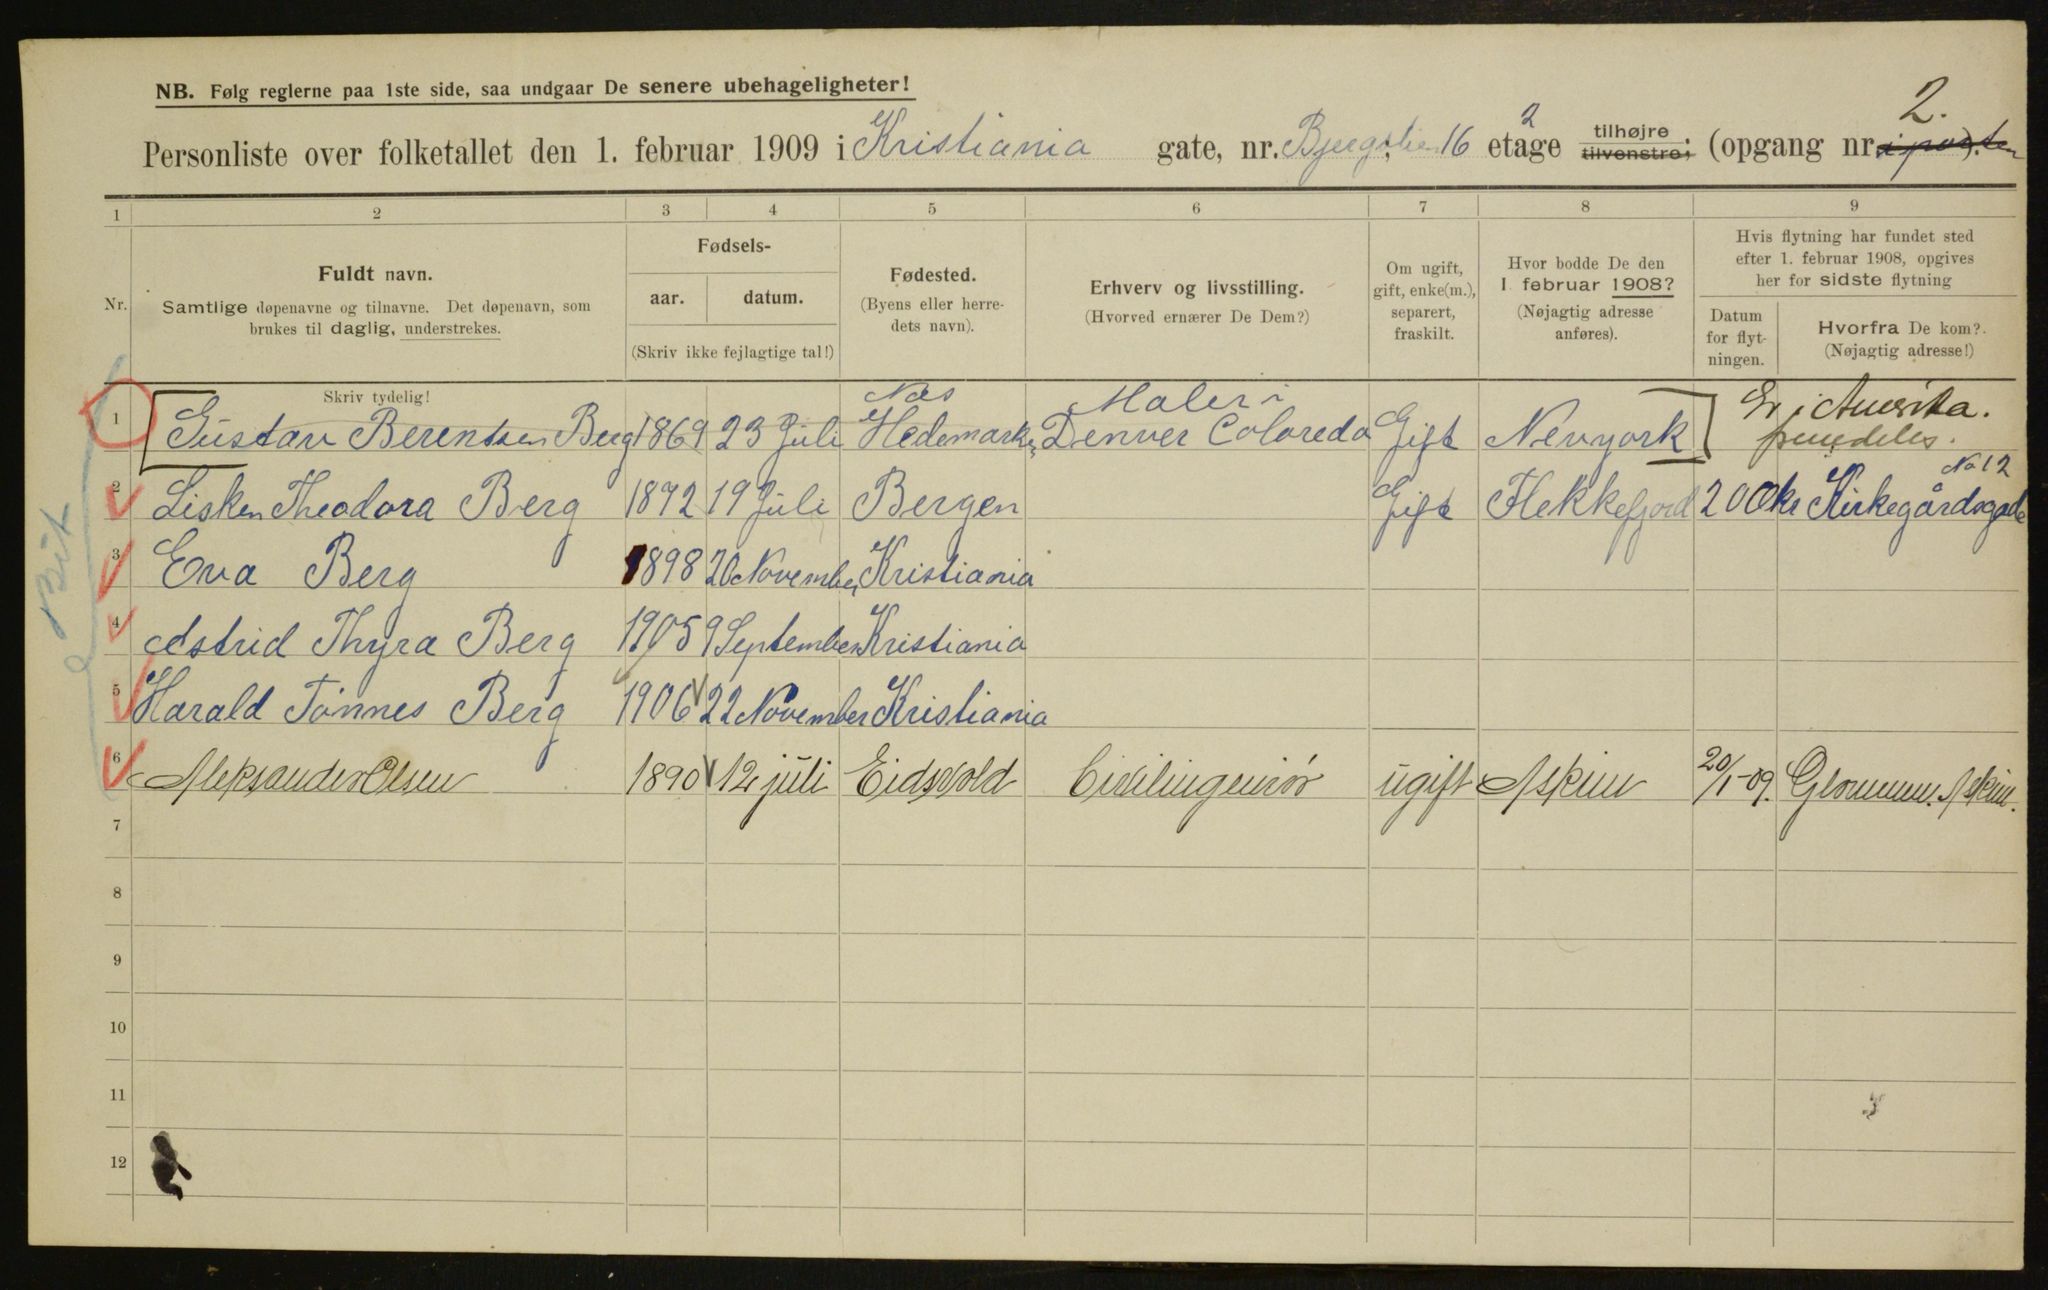 NB. Følg reglerne paa 1ste side, saa undgaar De senere ubehageligheter!
2.
Personliste over folketallet den 1. februar 1909 i Kristiania gate, nr. Bjergslien 16 2 etage tilhøjre tilvenstre; (opgang nr. i porten).
1 2 3 4 5 6 7 8 9
Nr.
Fuldt navn.
Samtlige døpenavne og tilnavne. Det døpenavn, som
brukes til daglig, understrekes.
Fødsels-
aar. datum.
(Skriv ikke fejlagtige tal!)
Fødested.
(Byens eller herre-
dets navn).
Erhverv og livsstilling.
(Hvorved ernærer De Dem?)
Om ugift,
gift, enke(m.),
separert,
fraskilt.
Hvor bodde De den
1 februar 1908?
(Nøjagtig adresse
anføres).
Hvis flytning har fundet sted
efter 1. februar 1908, opgives
her for sidste flytning
Datum
for flyt-
ningen.
Hvorfra De kom?
(Nøjagtig adresse!)
Skriv tydelig!
Næs Maler i Er i Amerika.
1 Gustav Berentsen Berg 1869 23 Juli Hedemarken Denver Coloredo Gift Nevyork fremdeles.
No 12
2 Lisken Theodora Berg 1872 19 Juli Bergen Gift Flekkefjord 200kr Kirkegårdsgade
3 Eva Berg 1898 20 November Kristiania
4 Astrid Thyra Berg 1905 9 September Kristiania
5 Harald Tönnes Berg 1906 22 November Kristiania
6 Aleksander Olsen 1890 12 juli Eidsvold Civilingeniør ugift Askim 20/1-09. Glommen. Askim.
7
8
9
10
11
12